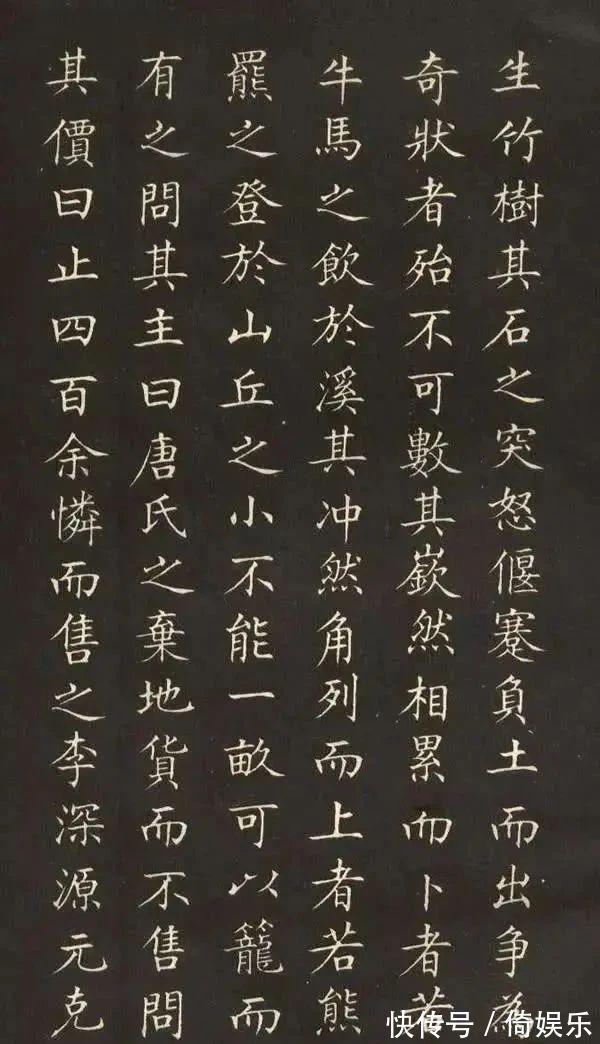 生竹樹其石之突怒偃蹇負土而出争為
奇狀者殆不可數其嶔然相累而卜者若
牛馬之飲於溪其冲然角列而上者若熊
羆之登於山丘之小不能一畝可以籠而
有之問其主曰唐氏之棄地貨而不售問
其價曰止四百余憐而售之李深源元克
快传号／倚娱乐